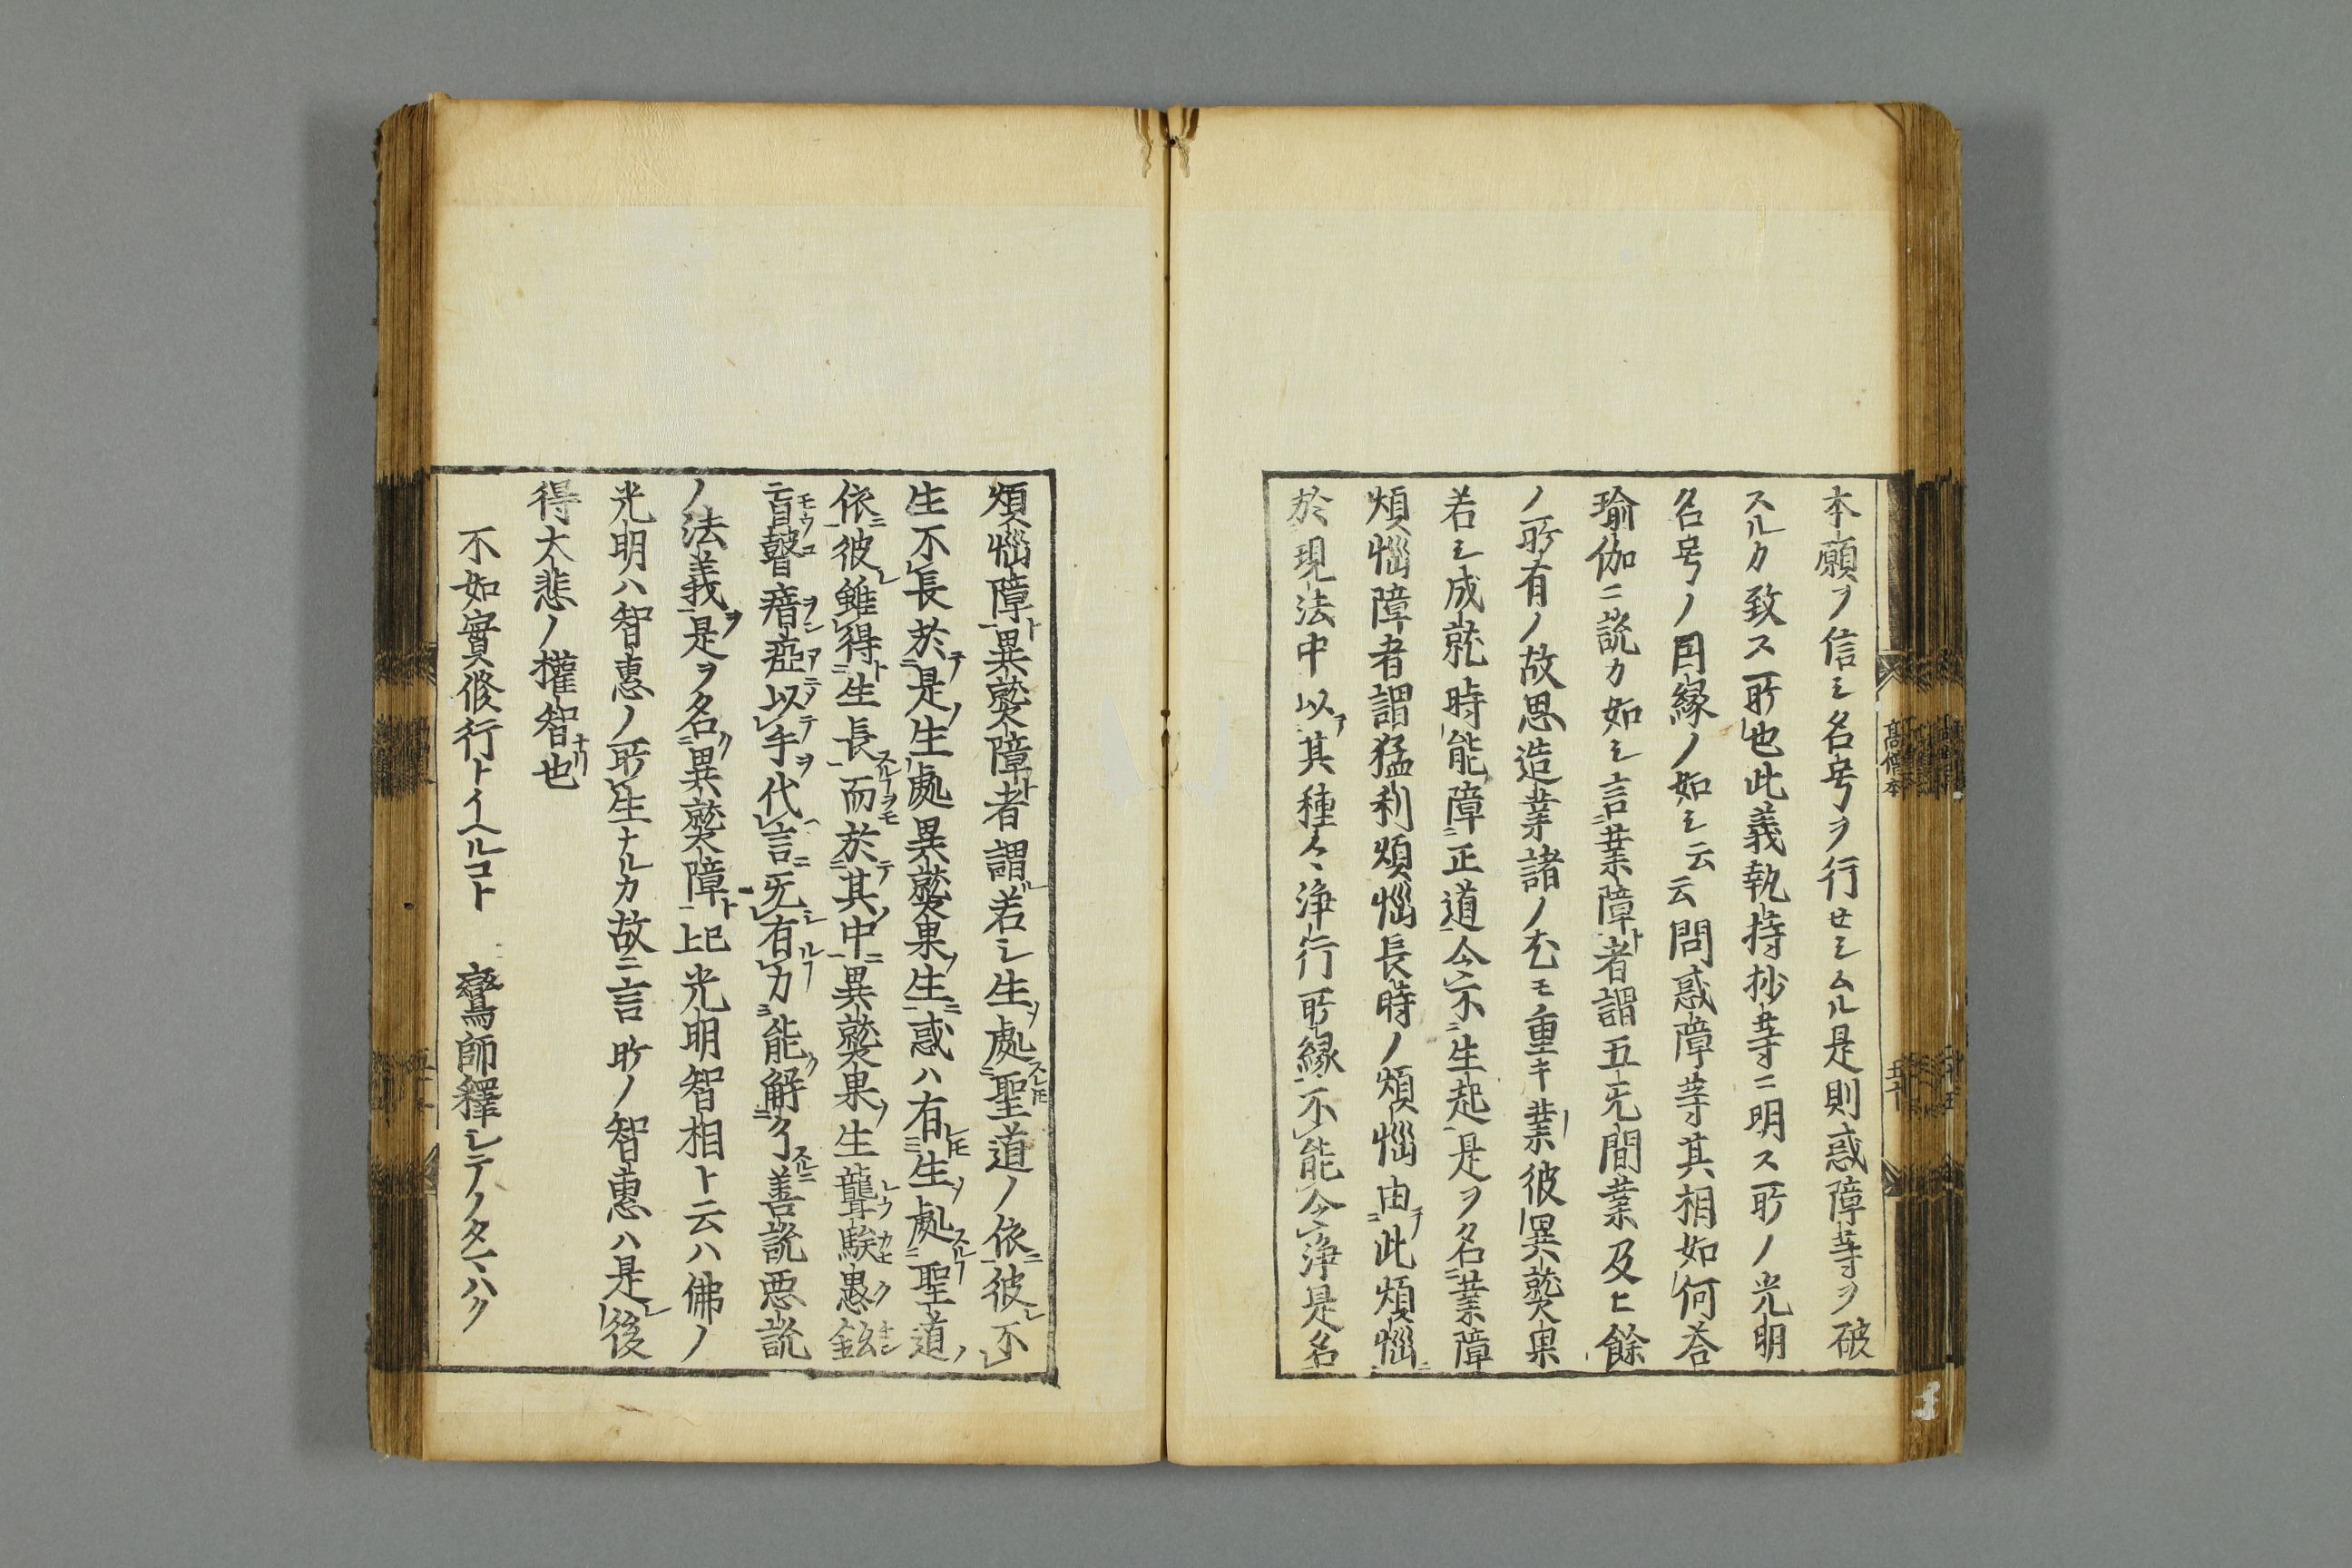 本願ヲ信シ名号ヲ行セシムル是則惑障等ヲ破
スルカ致ス所也此義執持抄等ニ明ス所ノ光明
名号ノ因縁ノ如シ云云問惑障等其相如何荅
瑜伽ニ説カ如シ言業障ト者謂五旡間業及ヒ餘
ノ所有ノ故思造業諸ノ尤モ重キ業彼異熟果
若シ成就時能障正道令不生起是ヲ名業障
煩惱障者謂猛利煩惱長時ノ煩惱由テ此煩惱
於現法中以其種々浄行所縁不能令浄是名
煩惱障ト異熟障ト者謂若シ生處聖道ノ依彼不
生不長於是生處異熟果生惑ハ有生處聖道
依彼雖得生長而於其中異熟果生聾騃愚鈍
盲瞽瘖瘂以手代言旡有力能解了善説悪説
ノ法義是ヲ名異熟障ト已上光明智相ト云ハ佛ノ
光明ハ智惠ノ所生ナルカ故ニ言所ノ智惠ハ是後
得大悲ノ權智也
不如實修行トイヘルコト 鸞師釋シテノタマハク
髙僧本
五十